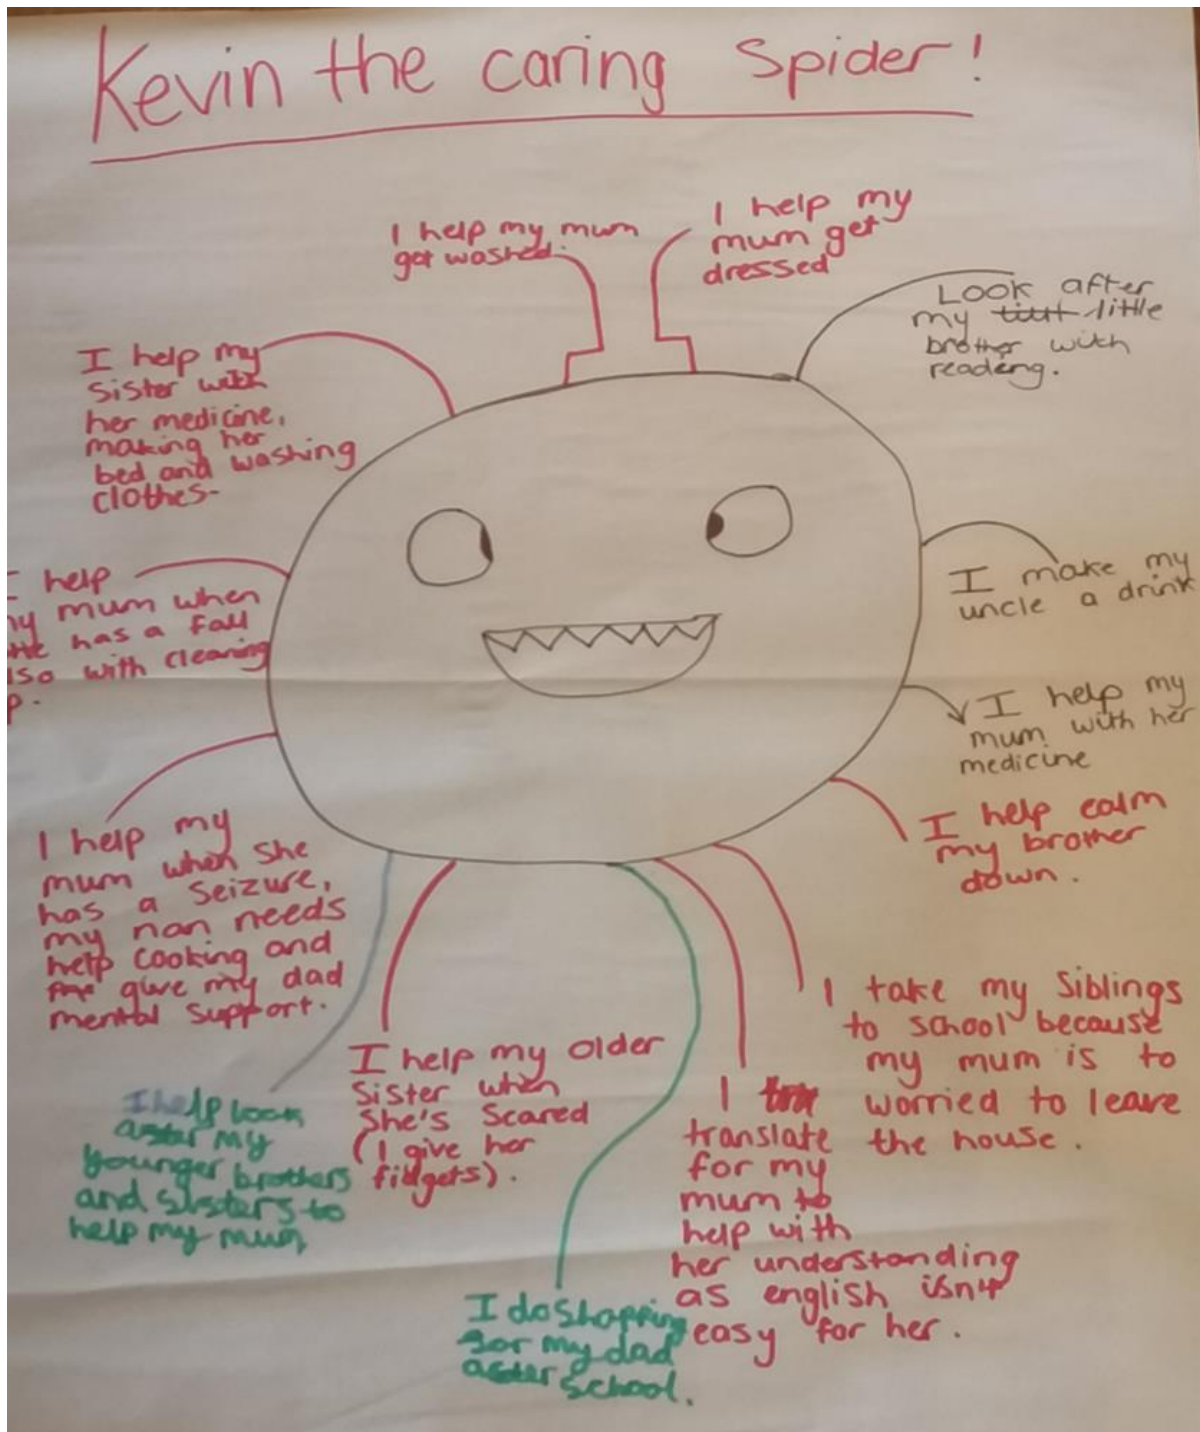 Kevin the caring Spider!
I help my mum
get washed.
I help my
mum get
dressed
Look after
my little
brother with
reading.
I help my
sister with
her medicine,
making her
bed and washing
clothes-
I make my
uncle a drink
help
mum when
has a fall
with cleaning
I help my
mum with her
medicine
I help calm
my brother
down.
I help my
mum when she
has a seizure,
my nan needs
help cooking and
give my dad
mental support.
I take my siblings
to school because
my mum is to
worried to leave
the house.
I help my older
sister when
she's scared
(I give her
fidgets).
I help look
aster my
younger brothers
and sisters to
help my mum
I
translate
for my
mum to
help with
her understanding
as english isn't
easy for her.
I do shopping
sor my dad
aster school.